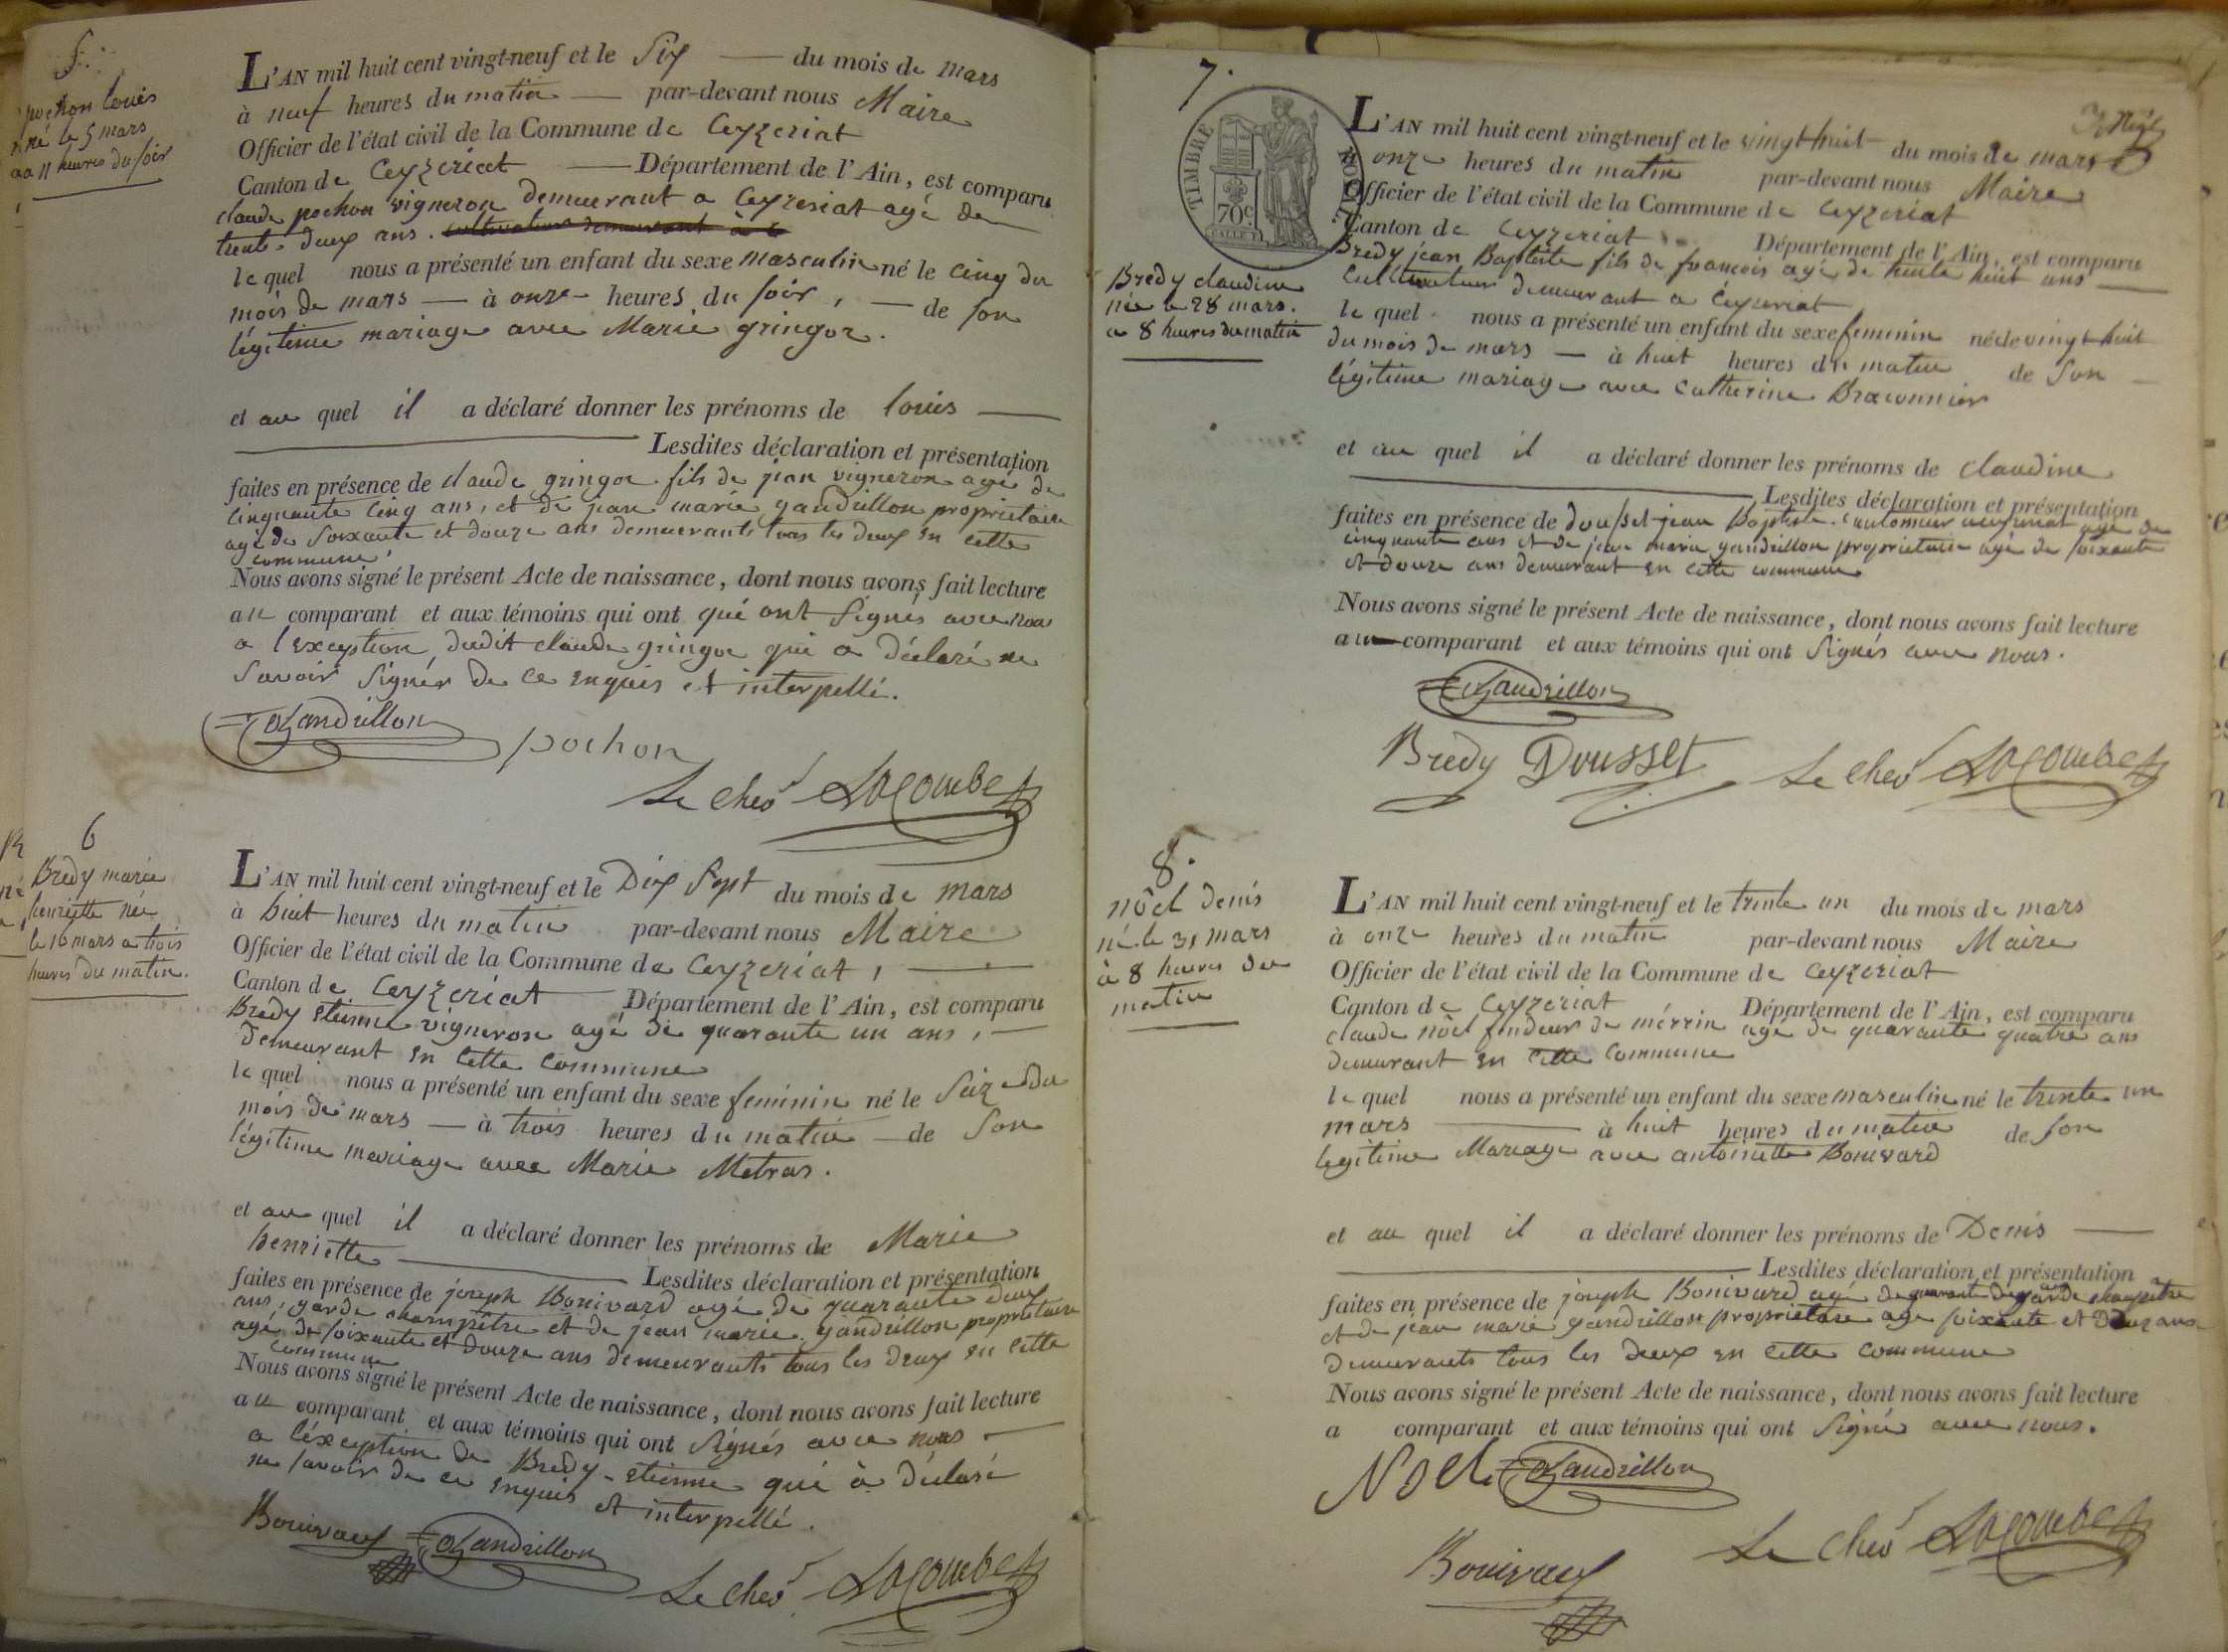 5.
pochon louis
né le 5 mars
a 11 heures du soir
L'AN mil huit cent vingt-neuf et le Six — du mois de mars
à neuf heures du matin — par-devant nous Maire
Officier de l'état civil de la Commune de Ceyzeriat
Canton de Ceyzeriat — Département de l'Ain, est comparu
claude pochon vigneron demeurant a Ceyzeriat agé de
trente deux ans. cultivateur demeurant à C
le quel nous a présenté un enfant du sexe masculin né le cinq du
mois de mars — à onze heures du soir, — de son
légitime mariage avec Marie gringoz.
et au quel il a déclaré donner les prénoms de louis —
Lesdites déclaration et présentation
faites en présence de claude gringoz fils de jean vigneron agé de
cinquante cinq ans, et de jean marie gandrillon propriétaire
agé de soixante et douze ans demeurants tous les deux en cette
commune
Nous avons signé le présent Acte de naissance, dont nous avons fait lecture
au comparant et aux témoins qui ont qui ont signés avec nous
a l'exception dudit claude gringoz qui a déclaré ne
savoir signer de ce enquis et interpellé.
Gandrillon
pochon
Le chev Lacombe
6
Bredy marie
henriette née
le 16 mars a trois
heures du matin.
L'AN mil huit cent vingt-neuf et le Dix Sept du mois de mars
à huit heures du matin par-devant nous Maire
Officier de l'état civil de la Commune de Ceyzeriat, —
Canton de Ceyzeriat — Département de l'Ain, est comparu
Bredy etienne vigneron agé de quarante un ans, —
demeurant en cette commune
le quel nous a présenté un enfant du sexe feminin né le Seize du
mois de mars — à trois heures du matin — de son
légitime mariage avec Marie Metras.
et au quel il a déclaré donner les prénoms de Marie
henriette —
Lesdites déclaration et présentation
faites en présence de joseph Bonivard agé de quarante deux
ans, garde champêtre et de jean marie gandrillon propriétaire
agé de soixante et douze ans demeurants tous les deux en cette
commune
Nous avons signé le présent Acte de naissance, dont nous avons fait lecture
au comparant et aux témoins qui ont signés avec nous —
a l'éxception de Bredy etienne qui à déclaré
ne savoir de ce enquis et interpellé.
Bonivard
Gandrillon
Le chev Lacombe
7.
TIMBRE ROYAL
70c
Bredy claudine
née le 28 mars.
a 8 heures du matin
L'AN mil huit cent vingt-neuf et le vingt huit du mois de mars
à onze heures du matin par-devant nous Maire
Officier de l'état civil de la Commune de Ceyzeriat
Canton de Ceyzeriat Département de l'Ain, est comparu
Bredy jean Baptiste fils de francois agé de trente huit ans —
cultivateur demeurant a Ceyzeriat
le quel nous a présenté un enfant du sexe feminin né le vingt huit
du mois de mars — à huit heures du matin de son —
légitime mariage avec catherine Braconnier
et au quel il a déclaré donner les prénoms de claudine
Lesdites déclaration et présentation
faites en présence de dousset jean Baptiste agé de
cinquante ans et de jean marie gandrillon propriétaire agé de soixante
et douze ans demeurant en cette commune
Nous avons signé le présent Acte de naissance, dont nous avons fait lecture
au comparant et aux témoins qui ont signés avec nous.
Gandrillon
Bredy Dousset
Le chev Lacombe
8.
nôel denis
né le 31 mars
à 8 heures du
matin
L'AN mil huit cent vingt-neuf et le trente un du mois de mars
à onze heures du matin par-devant nous Maire
Officier de l'état civil de la Commune de Ceyzeriat
Canton de Ceyzeriat Département de l'Ain, est comparu
claude nôel fendeur de mérrin agé de quarante quatre ans
demeurant en cette commune
le quel nous a présenté un enfant du sexe masculin né le trente un
mars — à huit heures du matin de son
legitime Mariage avec antoinette Bonivard
et au quel il a déclaré donner les prénoms de Denis —
Lesdites déclaration et présentation
faites en présence de joseph Bonivard agé de quarante deux garde champêtre
et de jean marie gandrillon propriétaire age soixante et douze ans
demeurants tous les deux en cette commune
Nous avons signé le présent Acte de naissance, dont nous avons fait lecture
a comparant et aux témoins qui ont signé avec nous.
Noel
Gandrillon
Le chev Lacombe
Bonivard